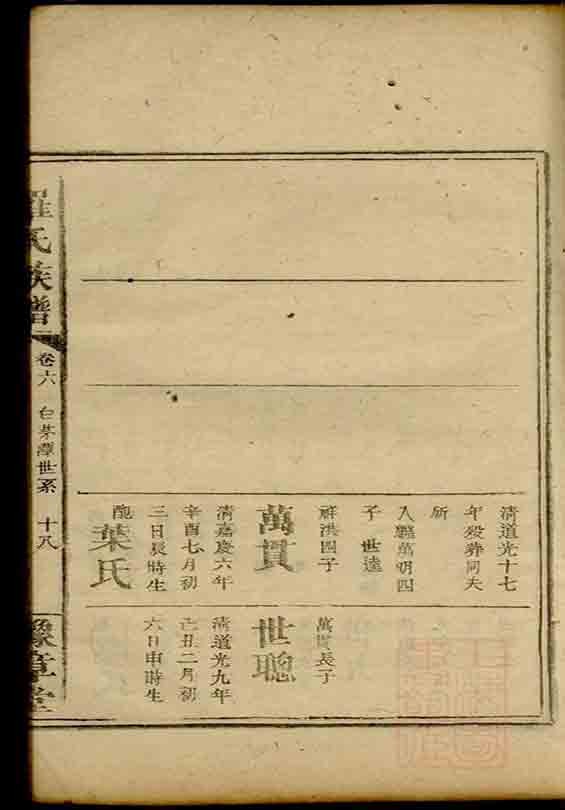 清道光十七
年歿葬同夫
所
入繼萬明四
子 世達
祥洪四子
萬貫
清嘉慶六年
辛酉七月初
三日辰時生
配
葉氏
萬貫長子
世聰
清道光九年
己丑二月初
六日申時生
羅氏族譜
卷六
白茅潭世系
十八
豫章堂